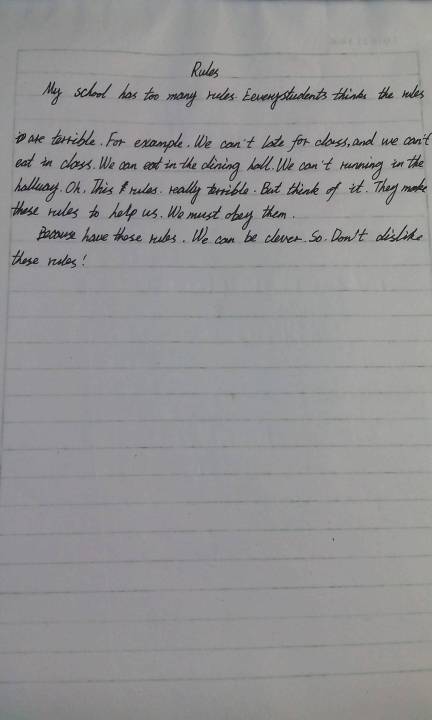 Rules
My school has too many rules. Eeverystudents thinks the rules
are terrible. For example. We can't late for class, and we can't
eat in class. We can eat in the dining hall. We can't running in the
hallway. Oh, This rules. really terrible. But think of it. They make
these rules to help us. We must obey them.
Because have these rules. We can be clever. So. Don't dislike
these rules!